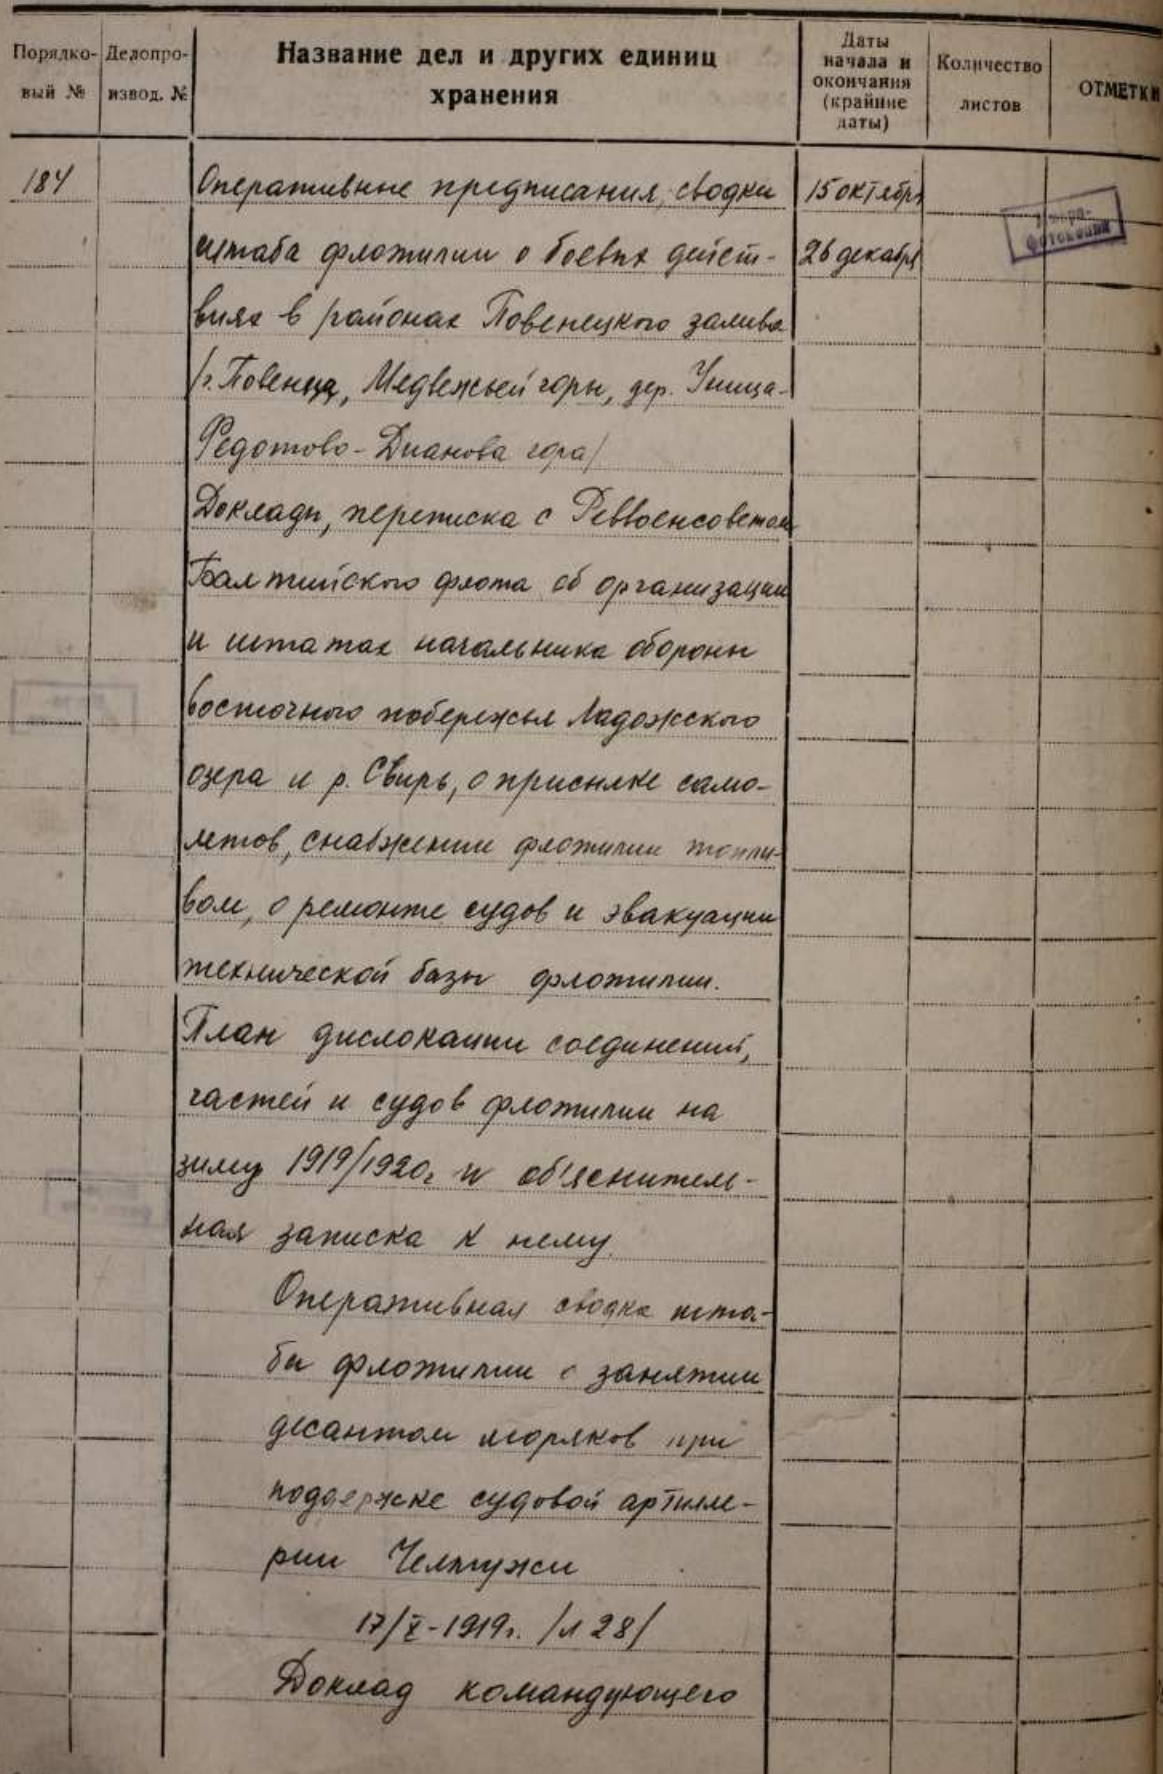 Порядко-
вый №
Делопро-
извод. №
Название дел и других единиц
хранения
Даты
начала и
окончания
(крайние
даты)
Количество
листов
ОТМЕТКИ
184
Оперативные предписания, сводки
15 октября
штаба флотилии о боевых дейст-
26 декабря
виях в районах Повенецкого залива
/г. Повенца, Медвежьей горы, дер. Уница-
Федотово-Дианова гора/
Доклады, переписка с Реввоенсоветом
Балтийского флота об организации
и штатах начальника обороны
восточного побережья Ладожского
озера и р. Свирь, о присылке само-
летов, снабжении флотилии топли-
вом, о ремонте судов и эвакуации
технической базы флотилии.
План дислокации соединений,
частей и судов флотилии на
зиму 1919/1920г и об'яснитель-
ная записка к нему.
Оперативная сводка шта-
ба флотилии о занятии
десантом моряков при
поддержке судовой артилле-
рии Челмужи
17/X-1919г. /л 28/
Доклад командующего